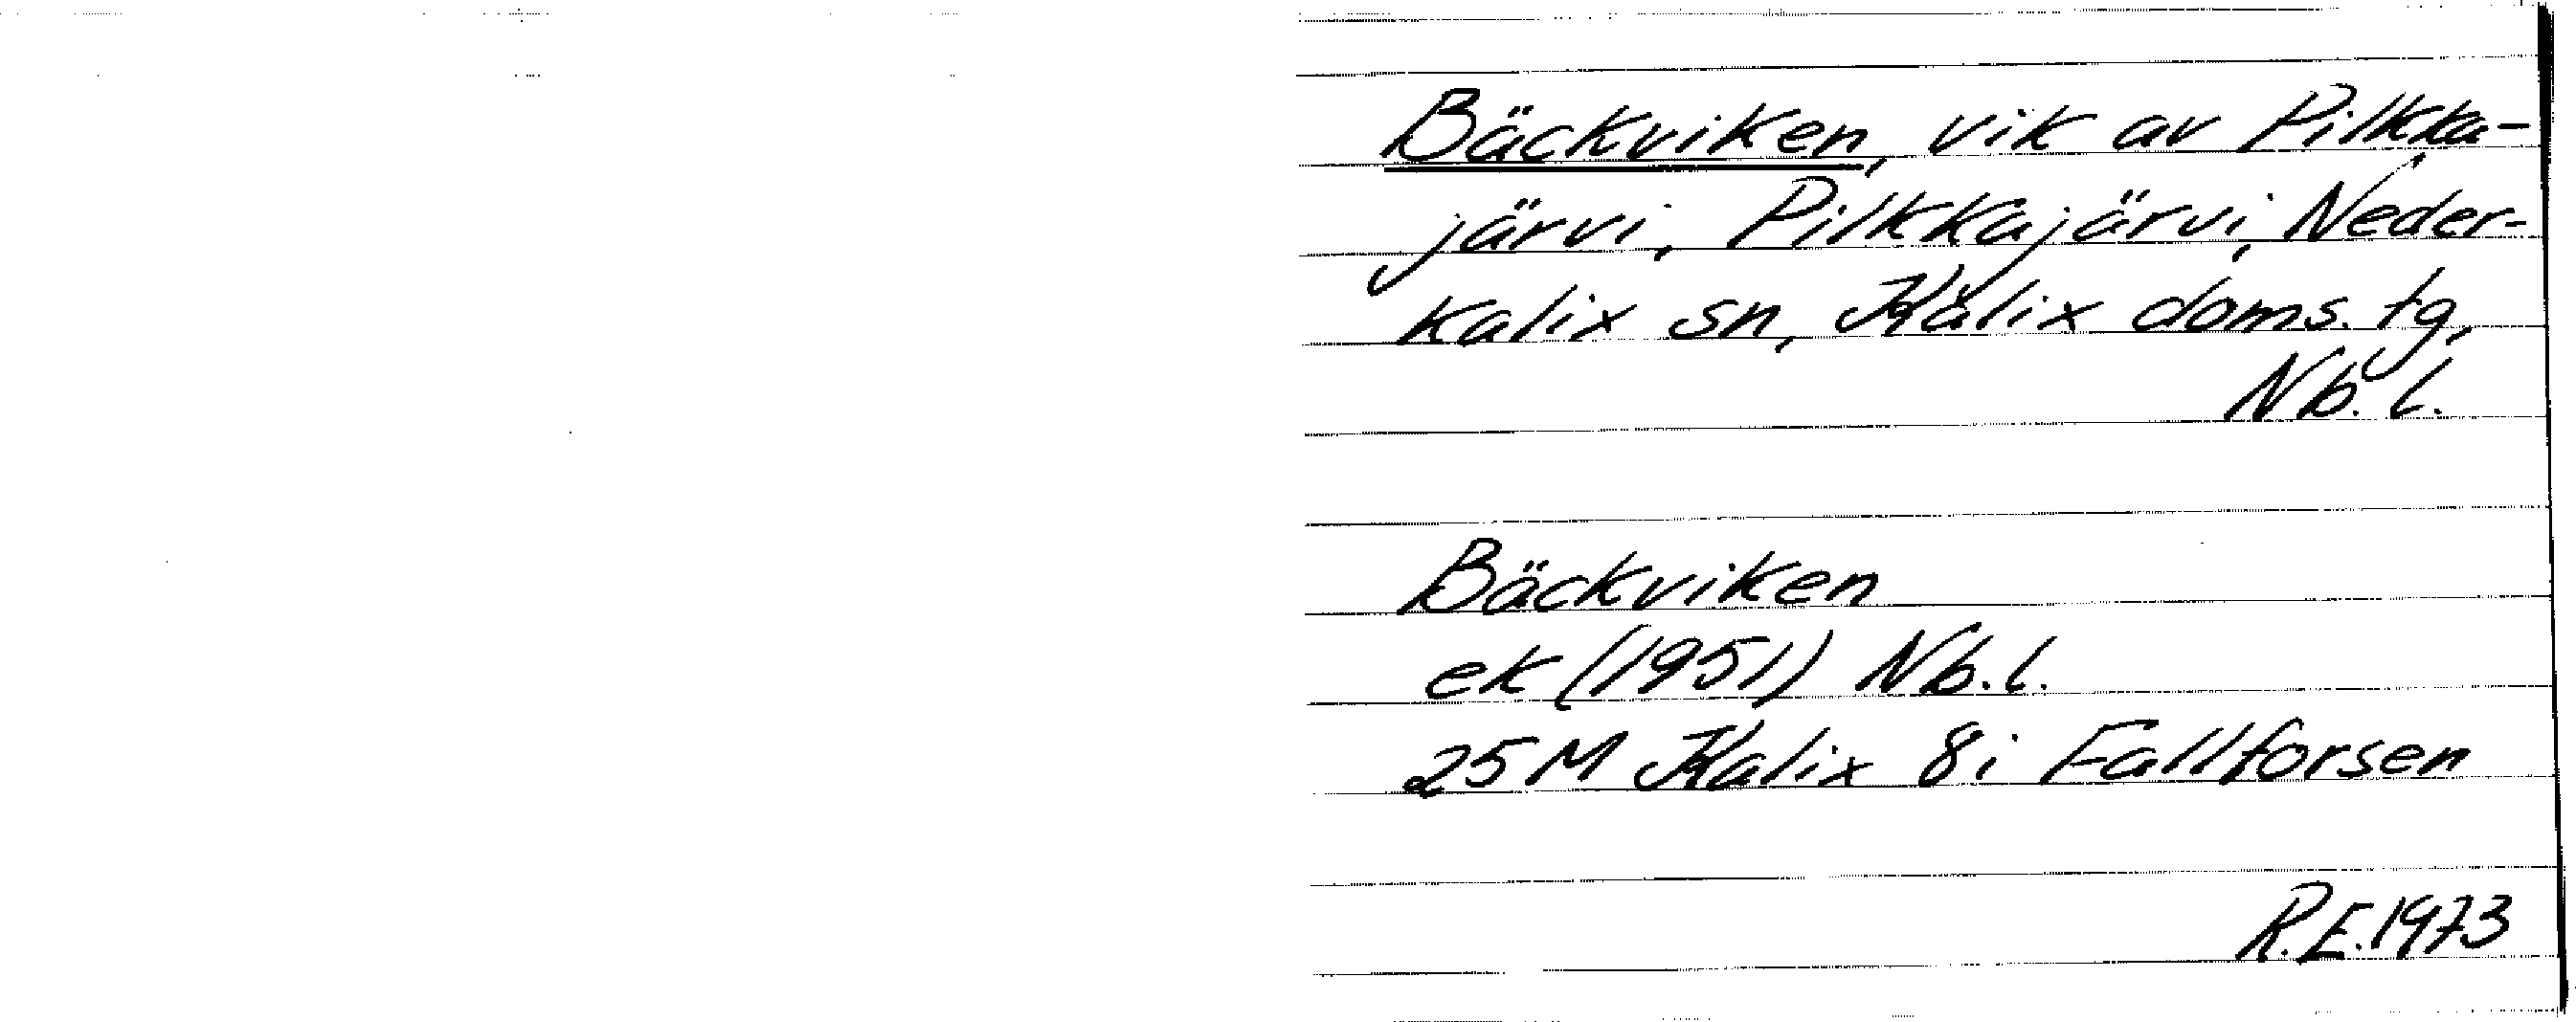 Bäckviken, vik av Pilkka-
järvi, Pilkkajärvi, Neder-
kalix sn, Kalix doms. tg,
Nb. l.
Bäckviken
ek (1951) Nb. l.
25 M Kalix 8i Fallforsen
R.E. 1973